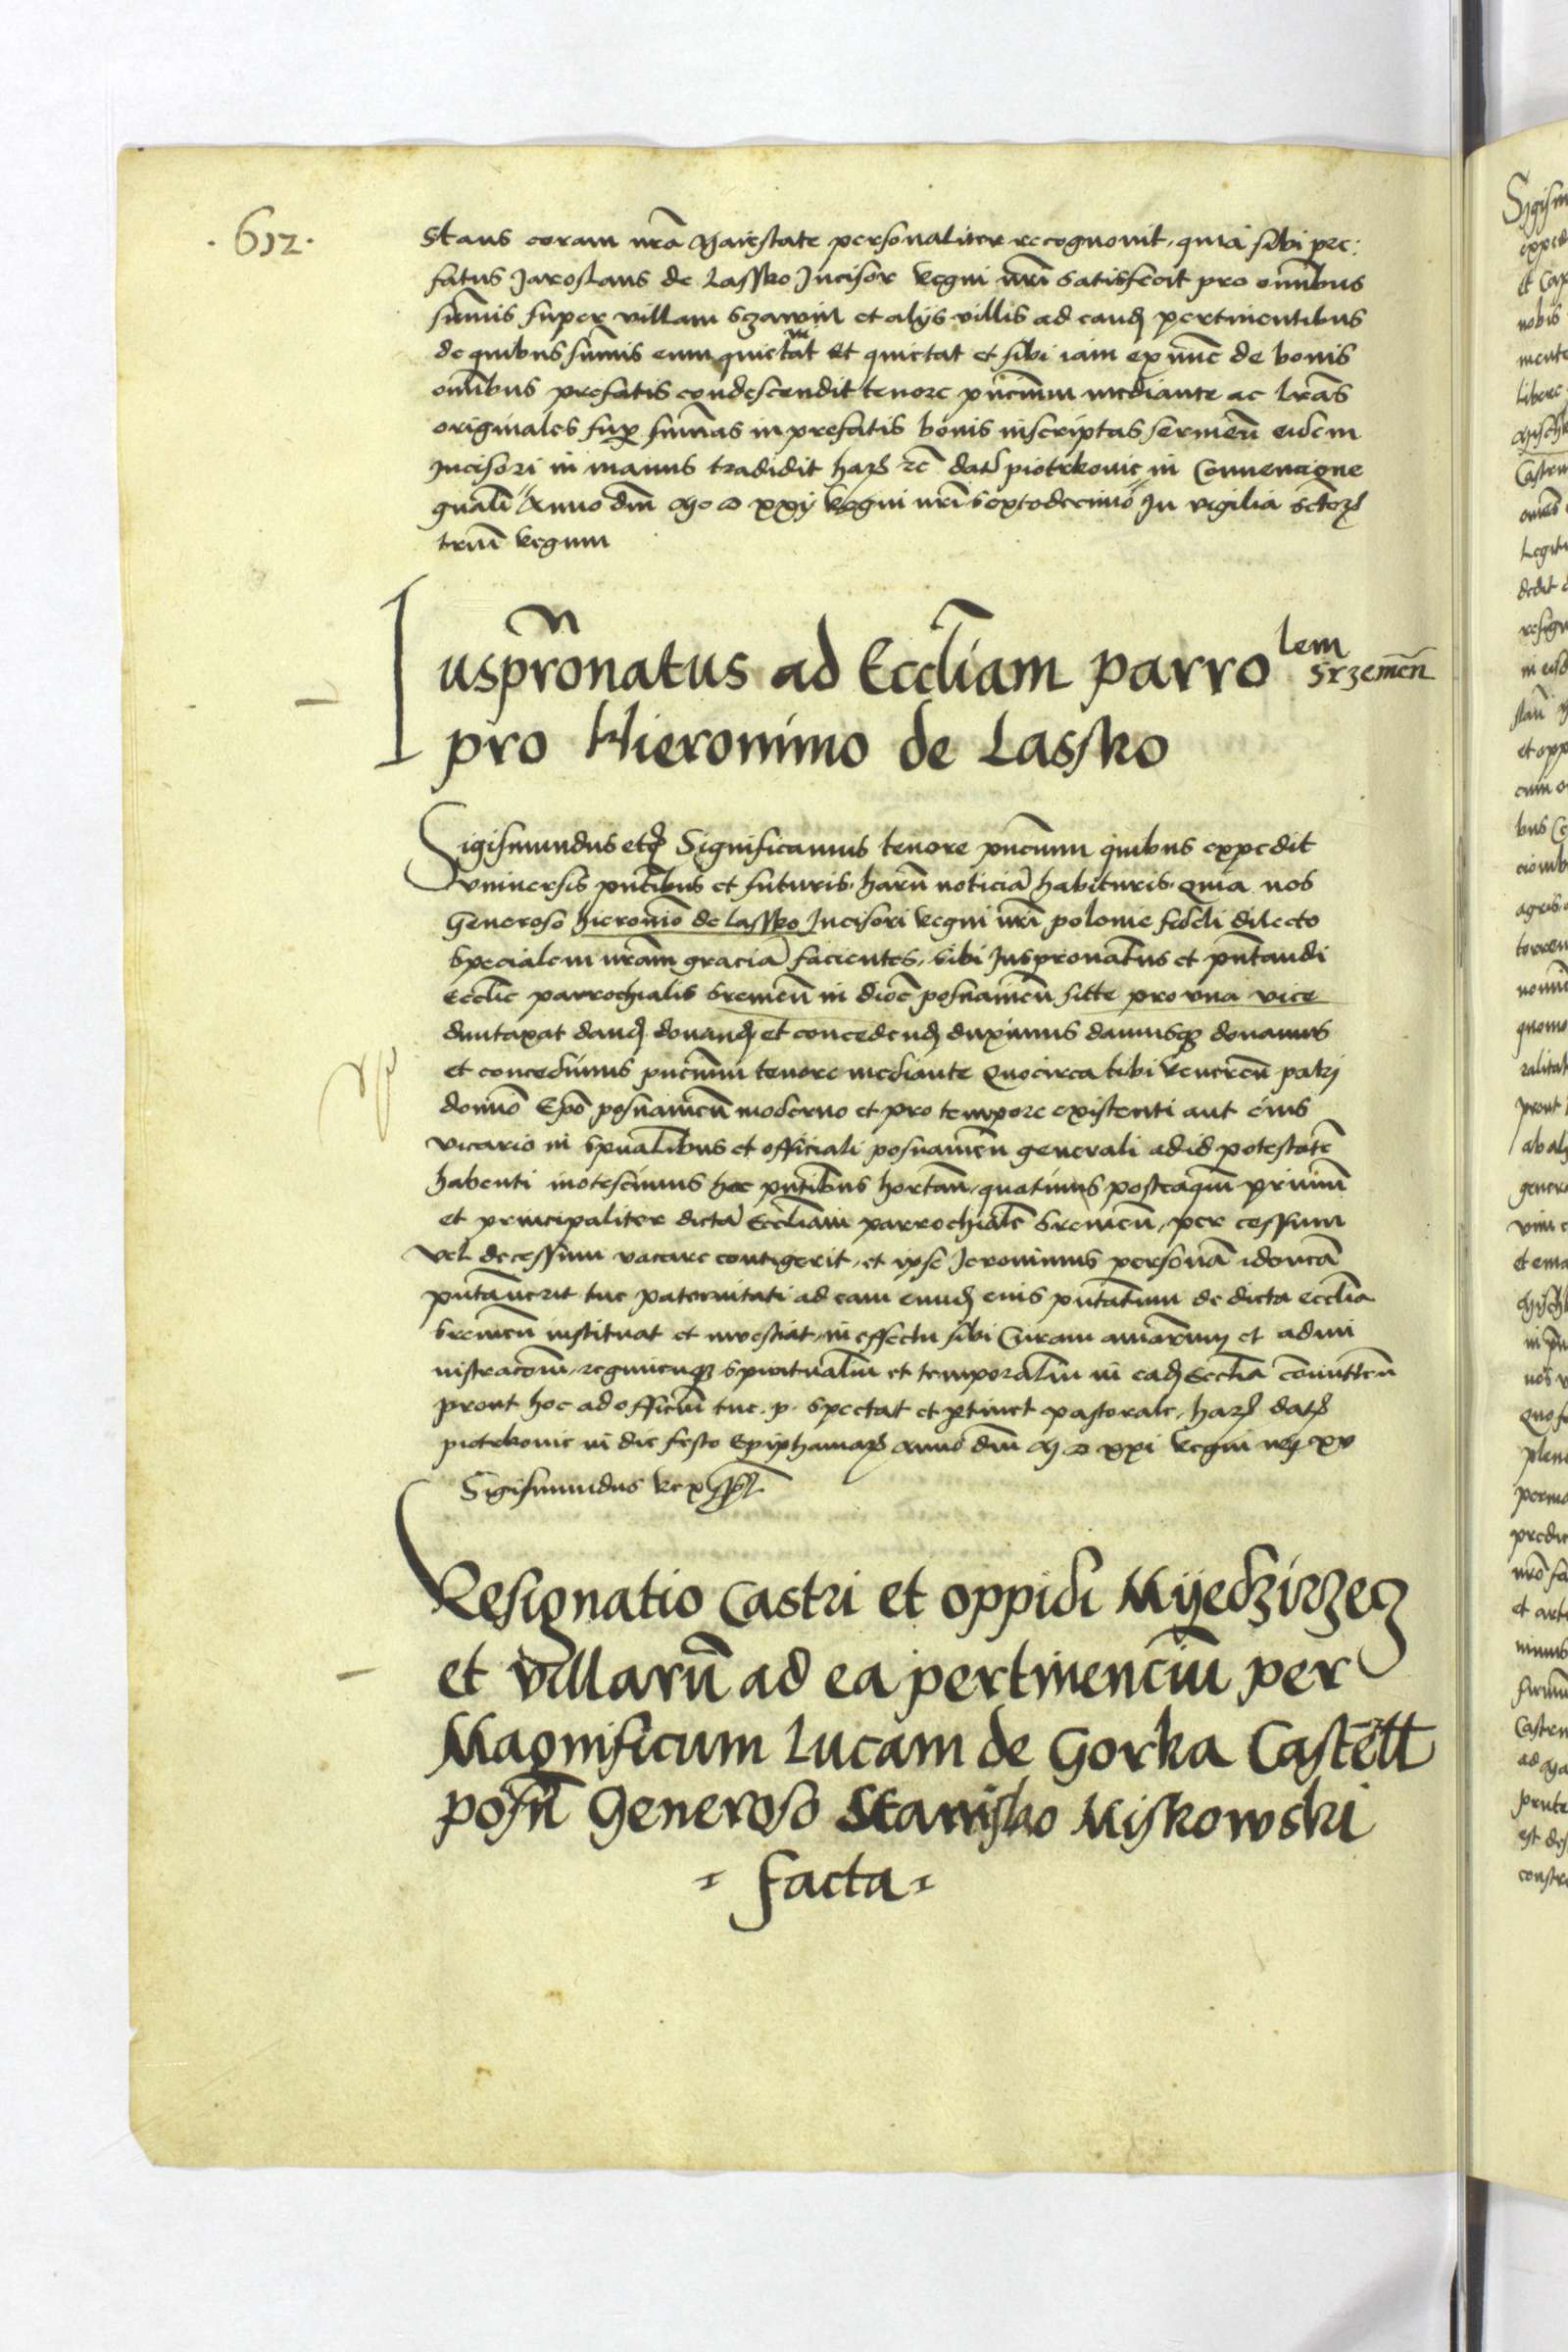 · 612 ·
Stans coram nrã Maiestate personaliter recognovit, quia sibi pre:
fatus Jaroslaus de Lassko Incisor Regni nrĩ satisfecit pro omĩbus
sum̃is super villam Szawin et alijs villis ad eand pertinentibus
de quibus sum̃is eum quictat et quictat et sibi iam ex nũc de bonis
omĩbus prefatis condescendit tenore pñcium mediante ac lrãs
originales sup sum̃as in prefatis bonis inscriptas sermeñ eidem
Incisori in manus tradidit harꝫ rc̃ datꝫ piotrkovie in Convencione
gnãli Anno dnĩ Mo D xxij Regni nrĩ sextodecimo In vigilia sctõrꝫ
triũ Regum
Iuspr̃onatus ad Eccliãm parrolem Srzemeñ
pro Hieronimo de Lassko
Sigismundus etcꝫ Significamus tenore pñcium quibus expedit
vniversis pñtibus et futuris, harũ noticiã habituris, Quia nos
Generoso hieronĩo de Lassko Incisori Regni nrĩ polonie fideli dilecto
specialem nrãm graciã facientes, sibi Juspronatus et pñtandi
Ecclie parrochialis Sremeñ in dioc̃ posnanieñ sitte pro vna vice
duntaxat dand donand et concedend duximus damusqꝫ donamus
et concedimus pñcium tenore mediante Quocirca tibi Revereñ patri
domĩo Epõ posnanieñ moderno et pro tempore existenti aut eius
vicario in spũalibus et officiali posnanieñ generali ad id potestatẽ
habenti inotescimus hoc pñtibus hortañ, quatinus posteaquam primũ
et principaliter dictã Eccliam parrochialẽ Sremeñ, per cessum
vel decessum vacare contigerit, et ipse Jeronimus personã idoneã
pñtaverit tue paternitati ad eam eund eius pñtatum de dicta ecclia
Sremeñ instituat et investiat, in effectu sibi Curam animarum et admi
nistracom̃, regimenqꝫ spiritualiũ et temporaliũ in ead Ecclia com̃itteñ
prout hoc ad officiũ tue .p. spectat et ptinet pastorale, harꝫ datꝫ
piotrkovie in die festo Epiphaniarꝫ Anno dnĩ M D xxi Regni nrĩ xv
Sigismundus Rex sspt
Resignatio Castri et oppidi Myedzirzecz
et villarũ ad ea pertinenciũ per
Magnificum Lucam de Gorka Castell
posñ Generoso Stanislao Miskowski
facta